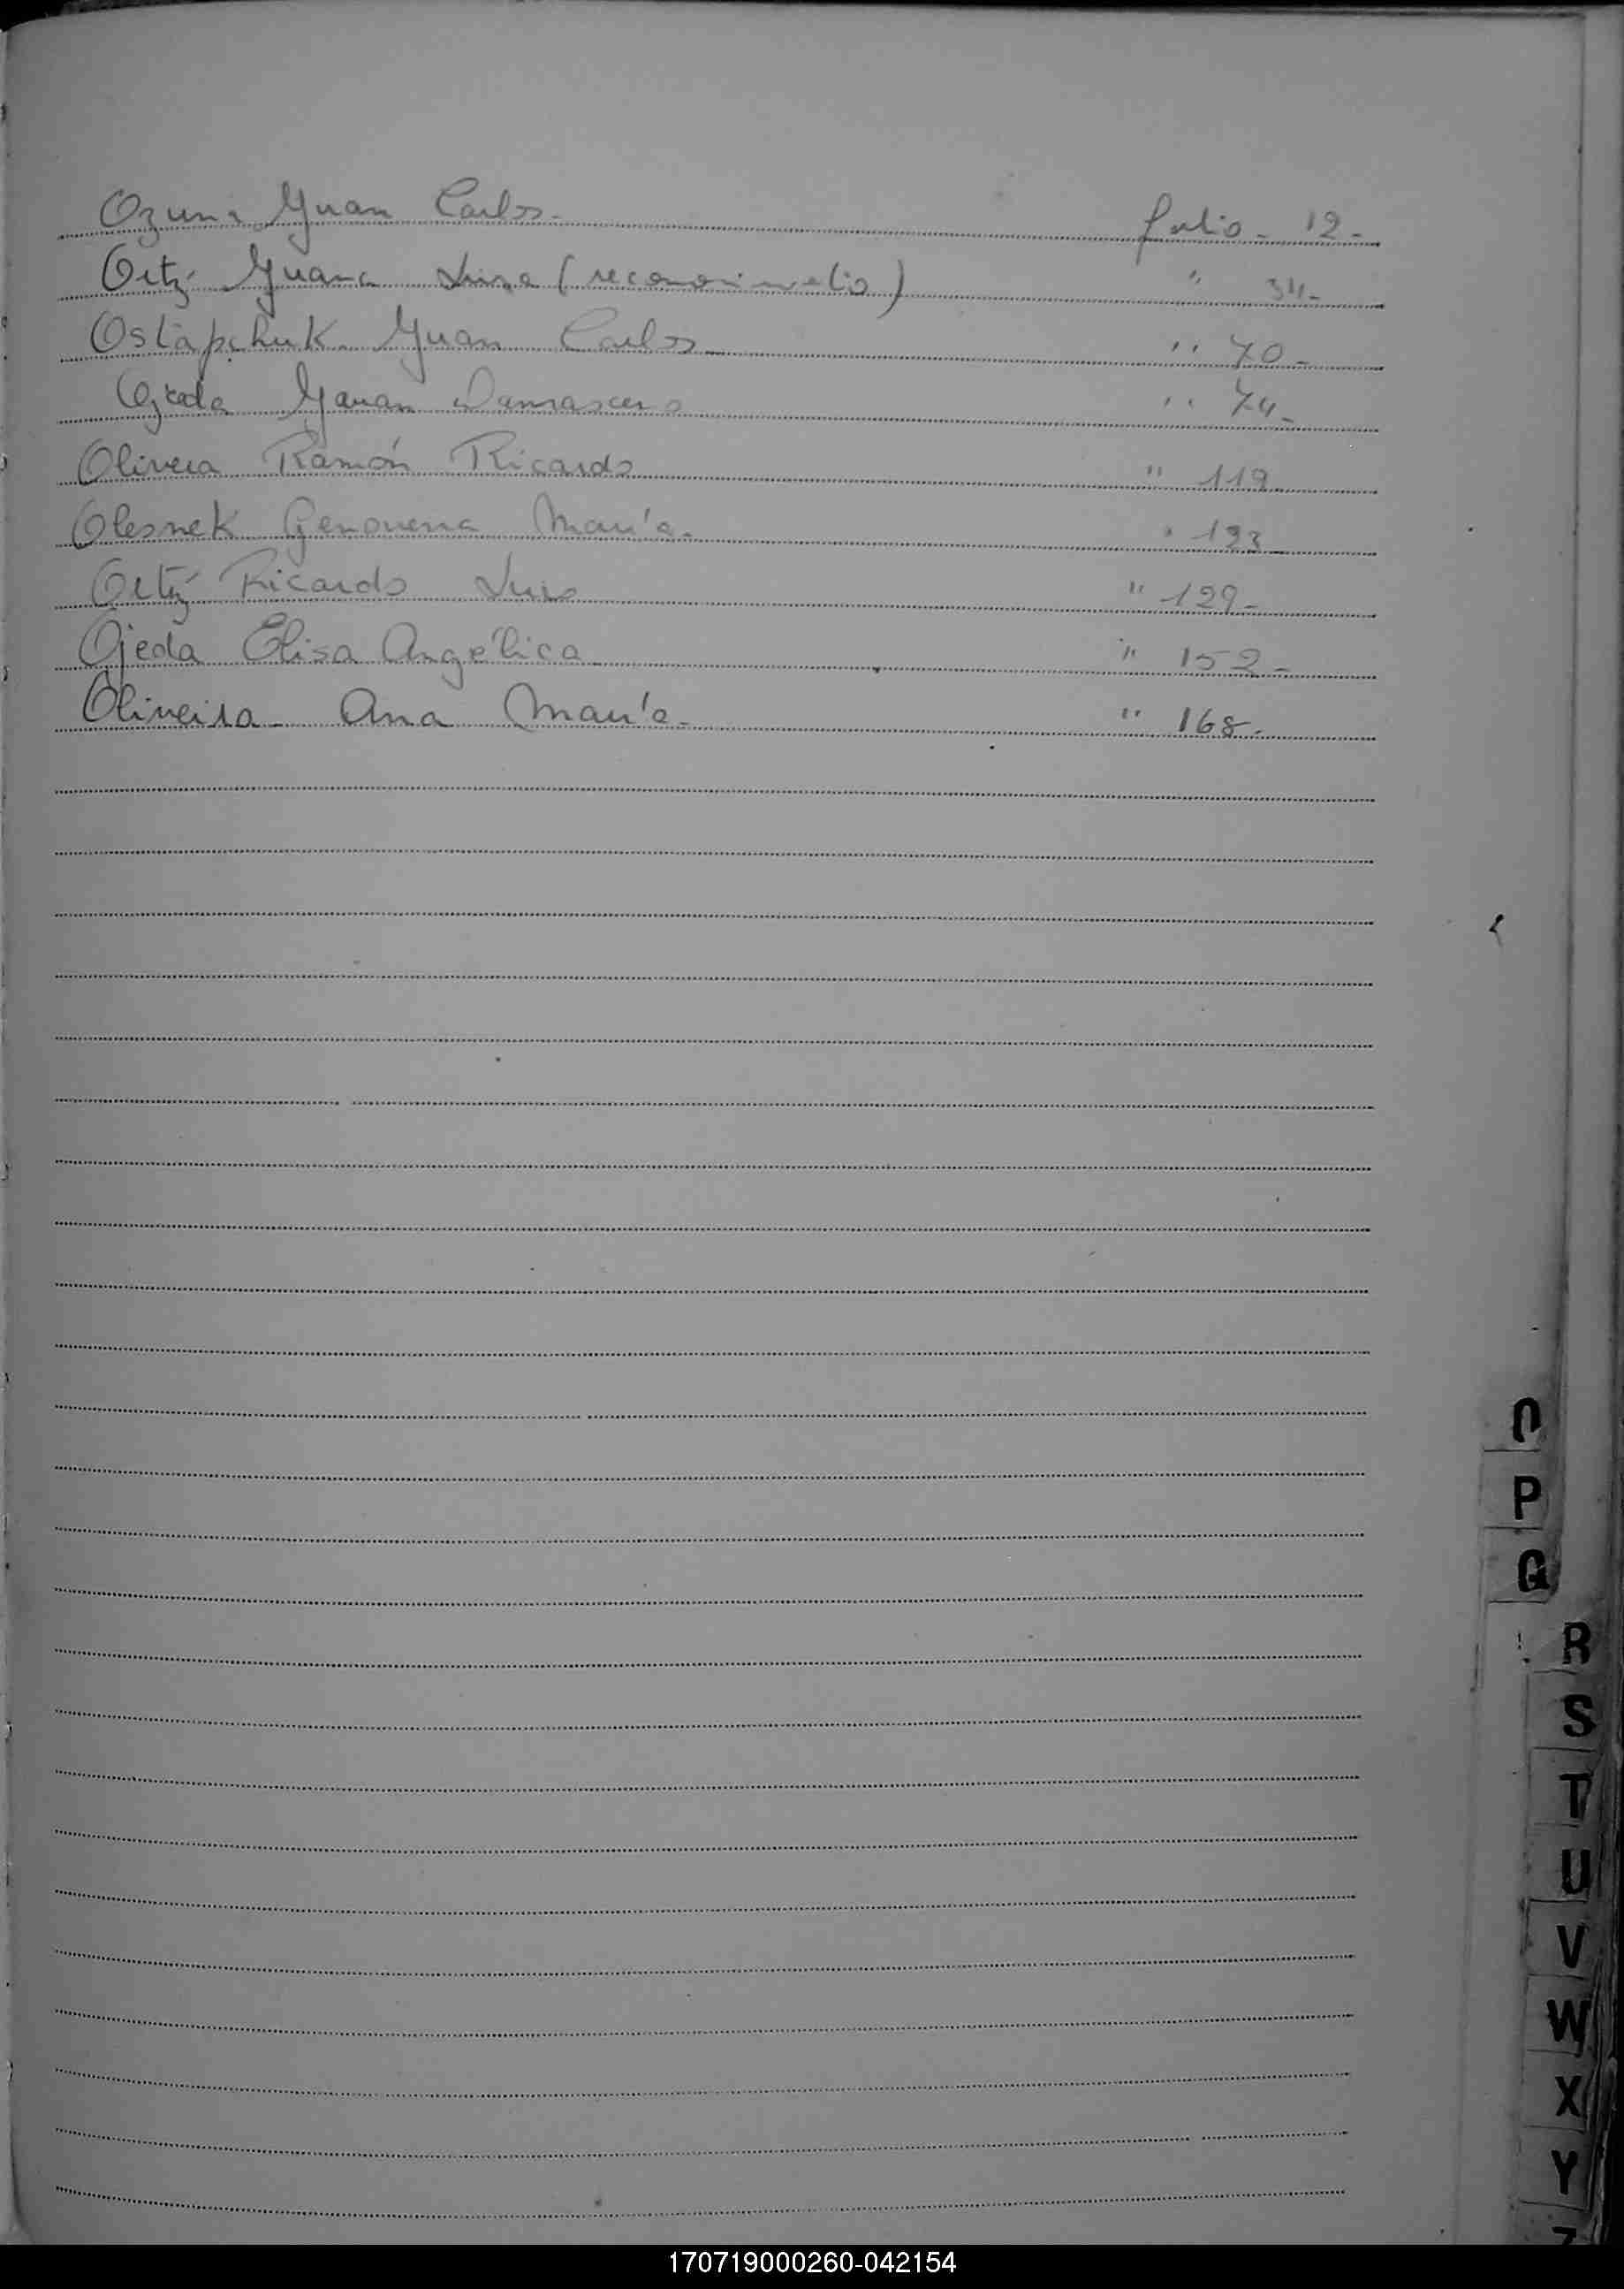 Ozuna Juan Carlos - folio - 12 -
Ortiz Juana Luisa (reconocimiento) " 34 -
Ostapchuk Juan Carlos " 70 -
Ojeda Damasceno " 74 -
Olivera Ramón Ricardo " 119
Olesnek Genoveva María - " 123
Ortiz Ricardo Luis " 129 -
Ojeda Elisa Angélica " 152 -
Oliveira - Ana María - " 168 -
O
P
Q
R
S
T
U
V
W
X
Y
Z
170719000260-042154